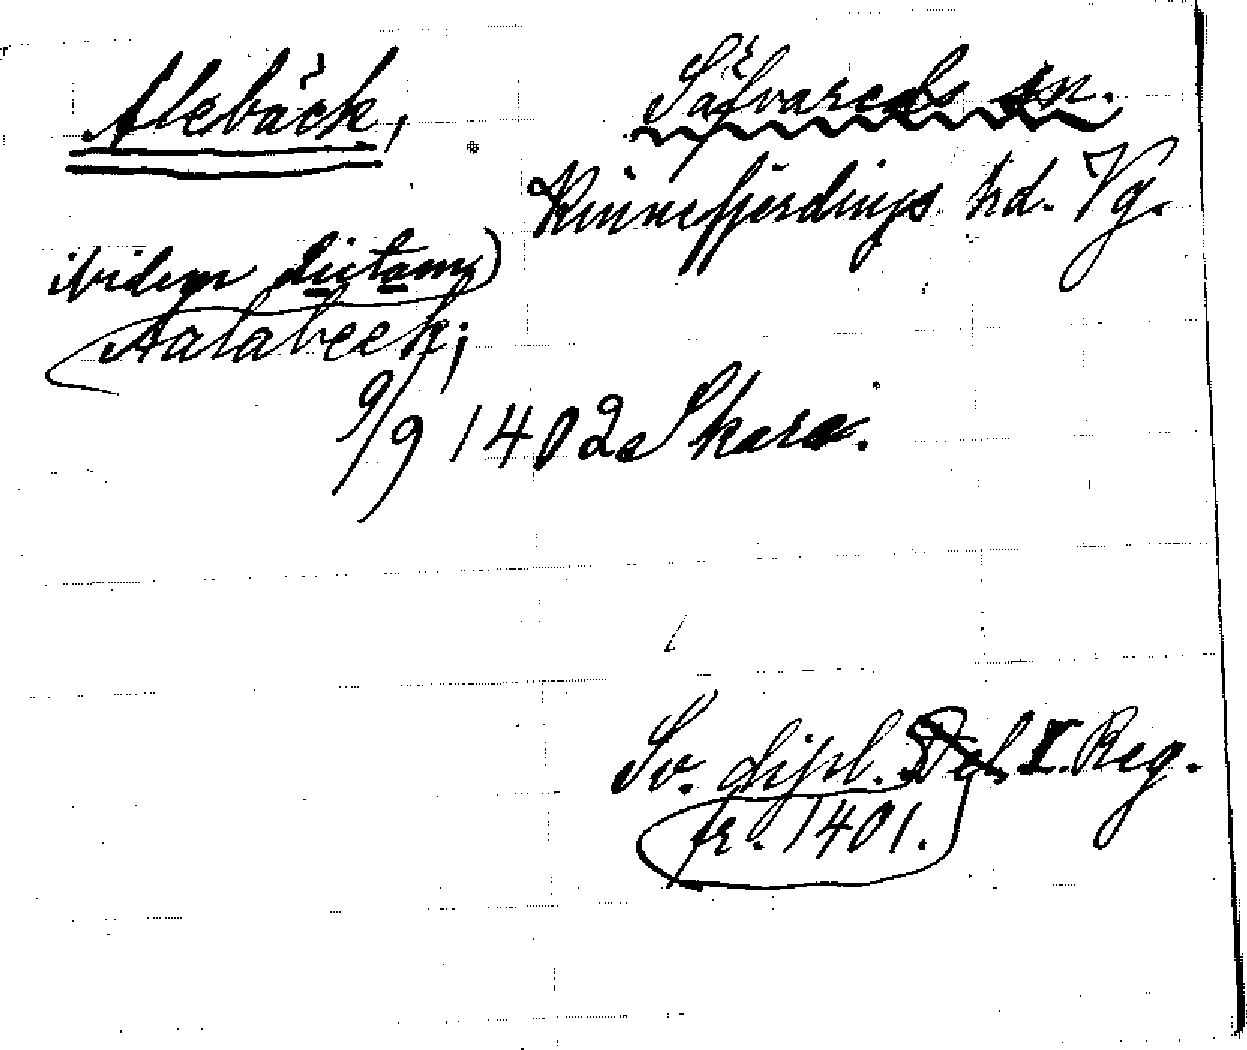 Alebäck,
Säfvareds sn.
Kinnefjerdings hd. Vg.
ibidem dictam)
Aalabeek;
9/9 1402 Skara.
Sv. dipl. Del I. Reg.
fr. 1401.